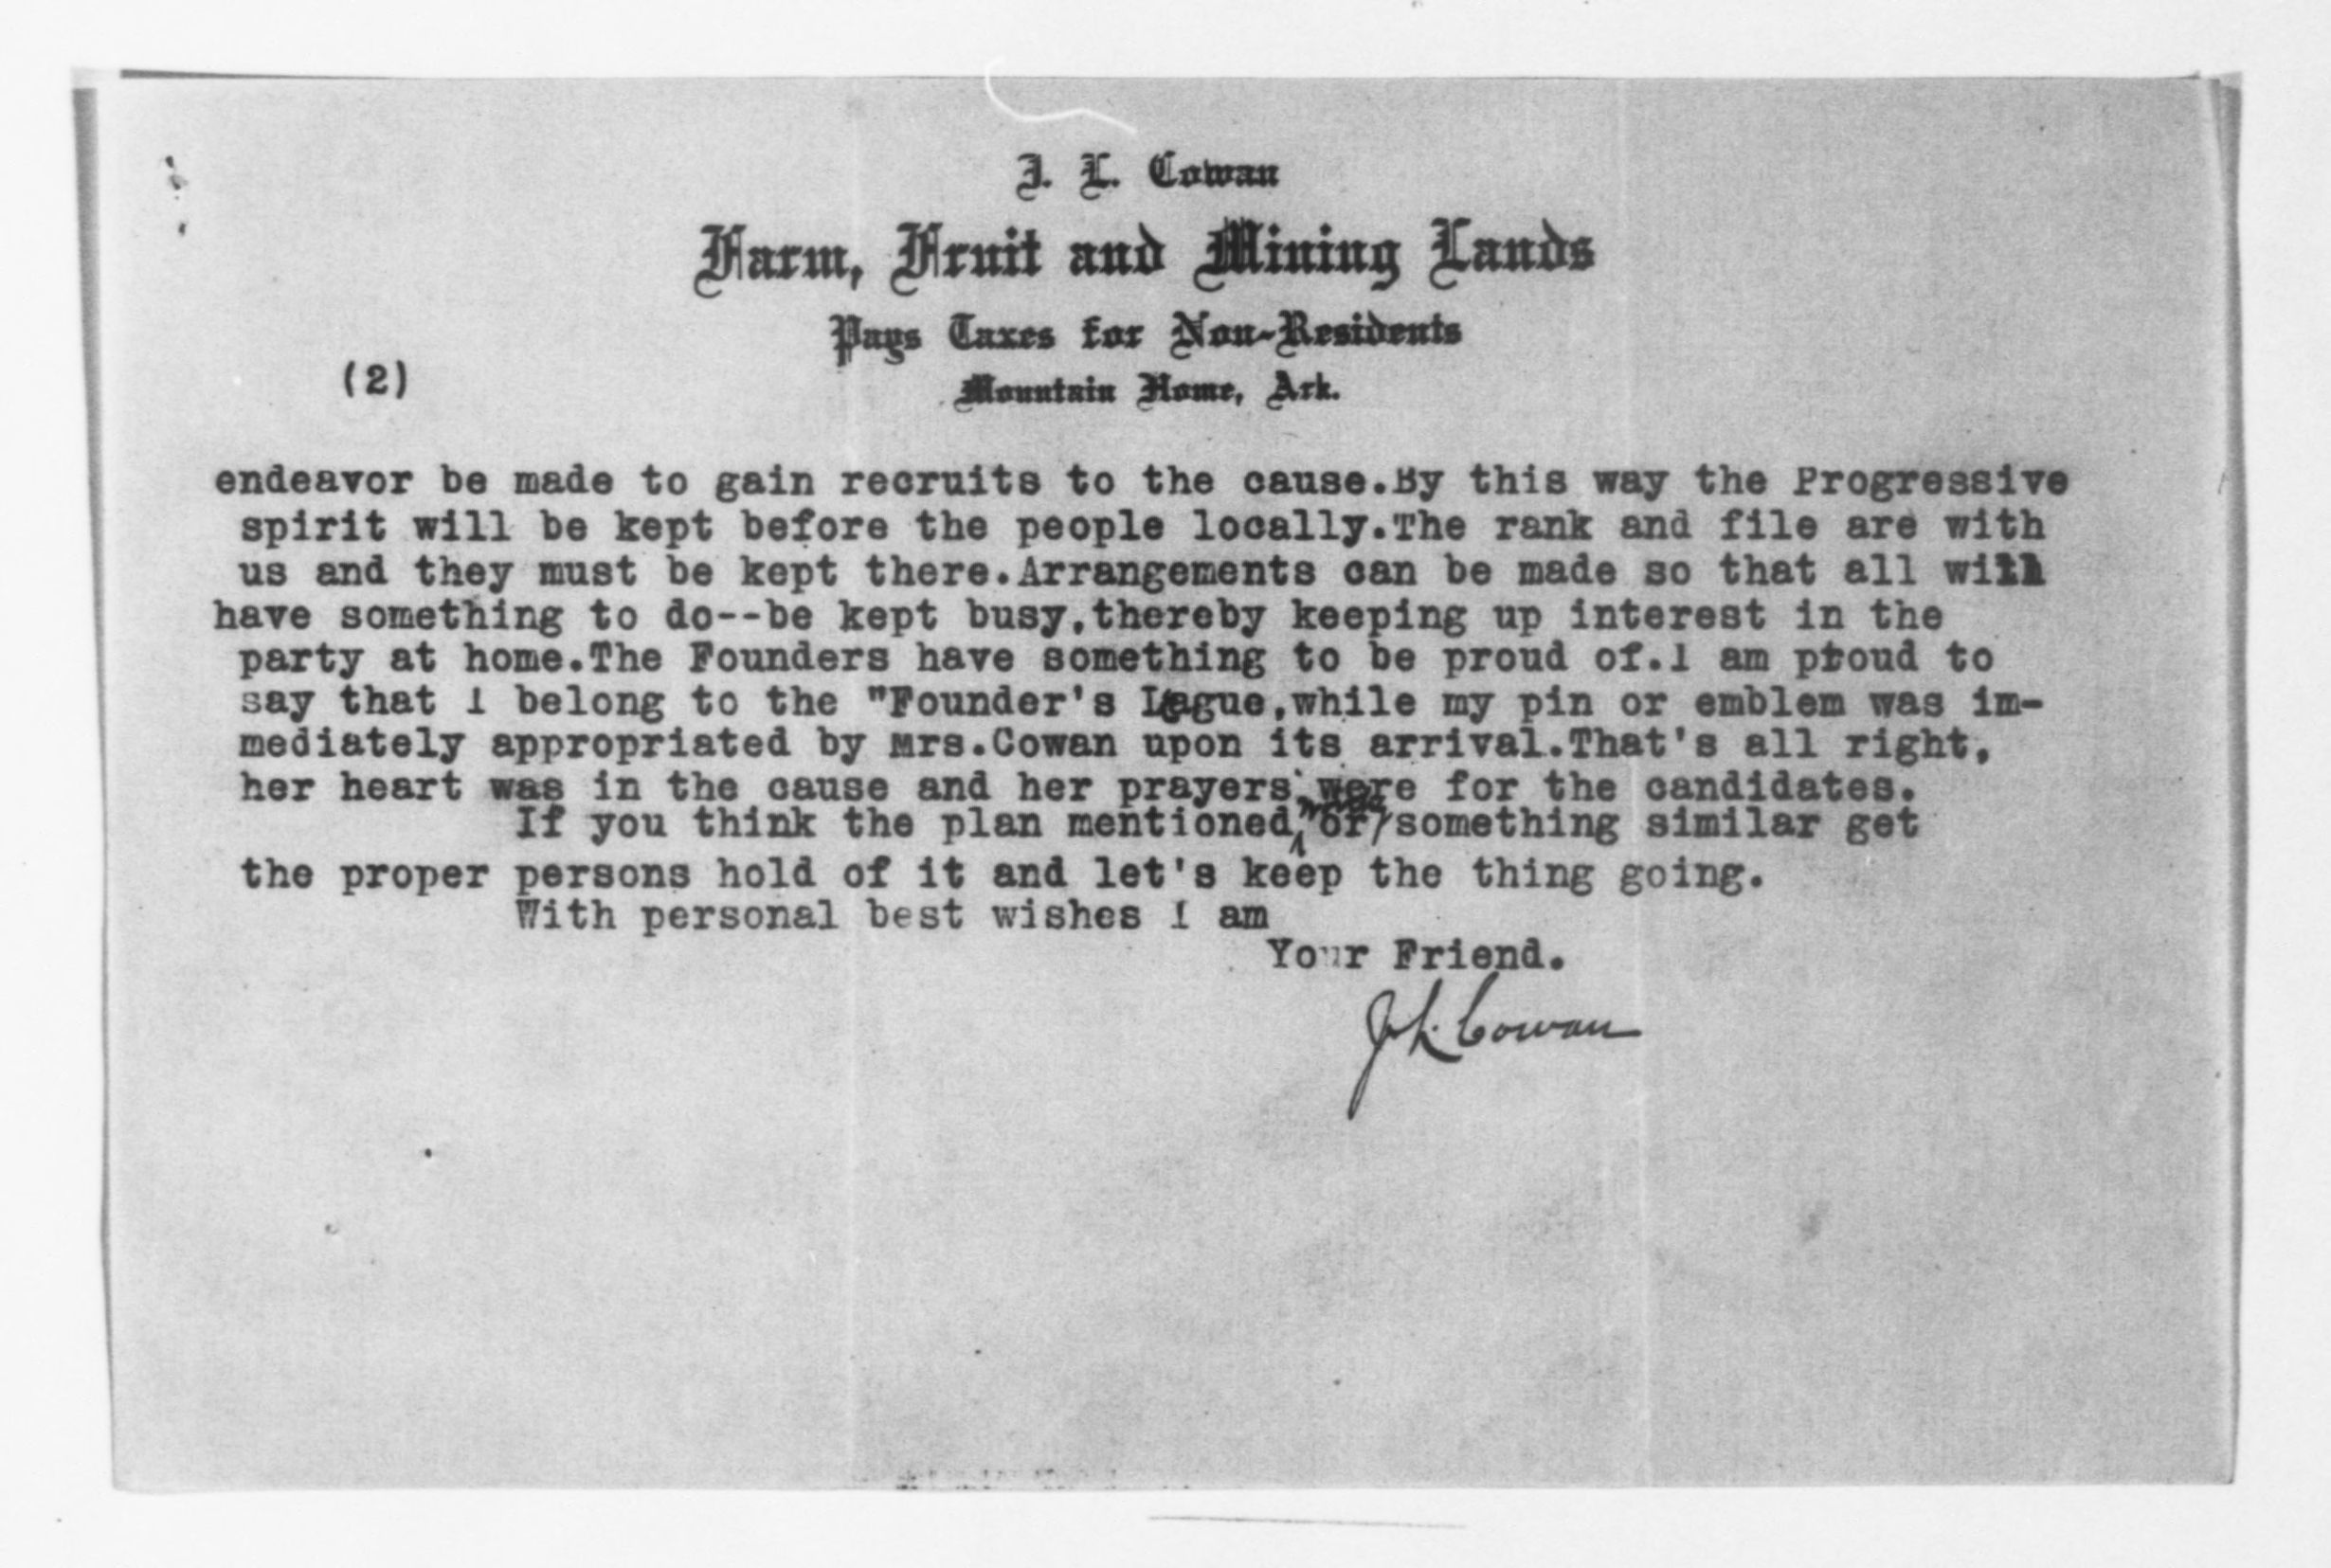 J. L. Cowan
Farm, Fruit and Mining Lands
Pays Taxes for Non-Residents
Mountain Home, Ark.
(2)
endeavor be made to gain recruits to the cause.By this way the Progressive
spirit will be kept before the people locally.The rank and file are with
us and they must be kept there.Arrangements can be made so that all will
have something to do--be kept busy,thereby keeping up interest in the
party at home.The Founders have something to be proud of.I am proud to
say that I belong to the "Founder's League,while my pin or emblem was im-
mediately appropriated by Mrs.Cowan upon its arrival.That's all right,
her heart was in the cause and her prayers were for the candidates.
If you think the plan mentioned, or something similar get
the proper persons hold of it and let's keep the thing going.
With personal best wishes I am
Your Friend.
J. L. Cowan